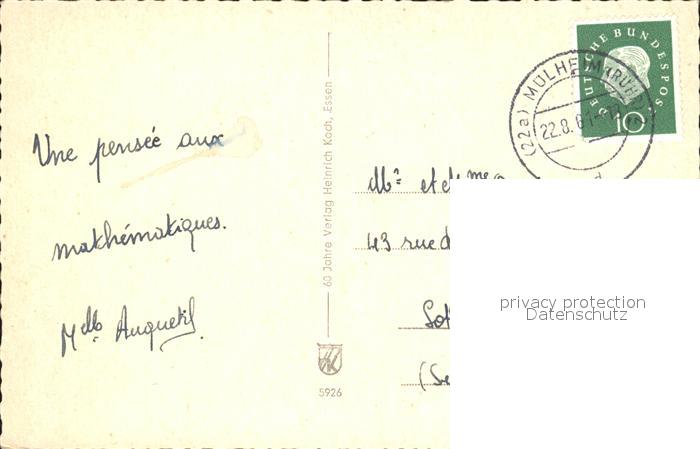 Une pensée aux
mathématiques.
Melle Anquetil
60 Jahre Verlag Heinrich Koch, Essen
5926
DEUTSCHE BUNDESPOST
10
(22a) MÜLHEIM (RUHR)
22.8.61
Mr et Mme
43 rue d
Sot
(Se
privacy protection
Datenschutz